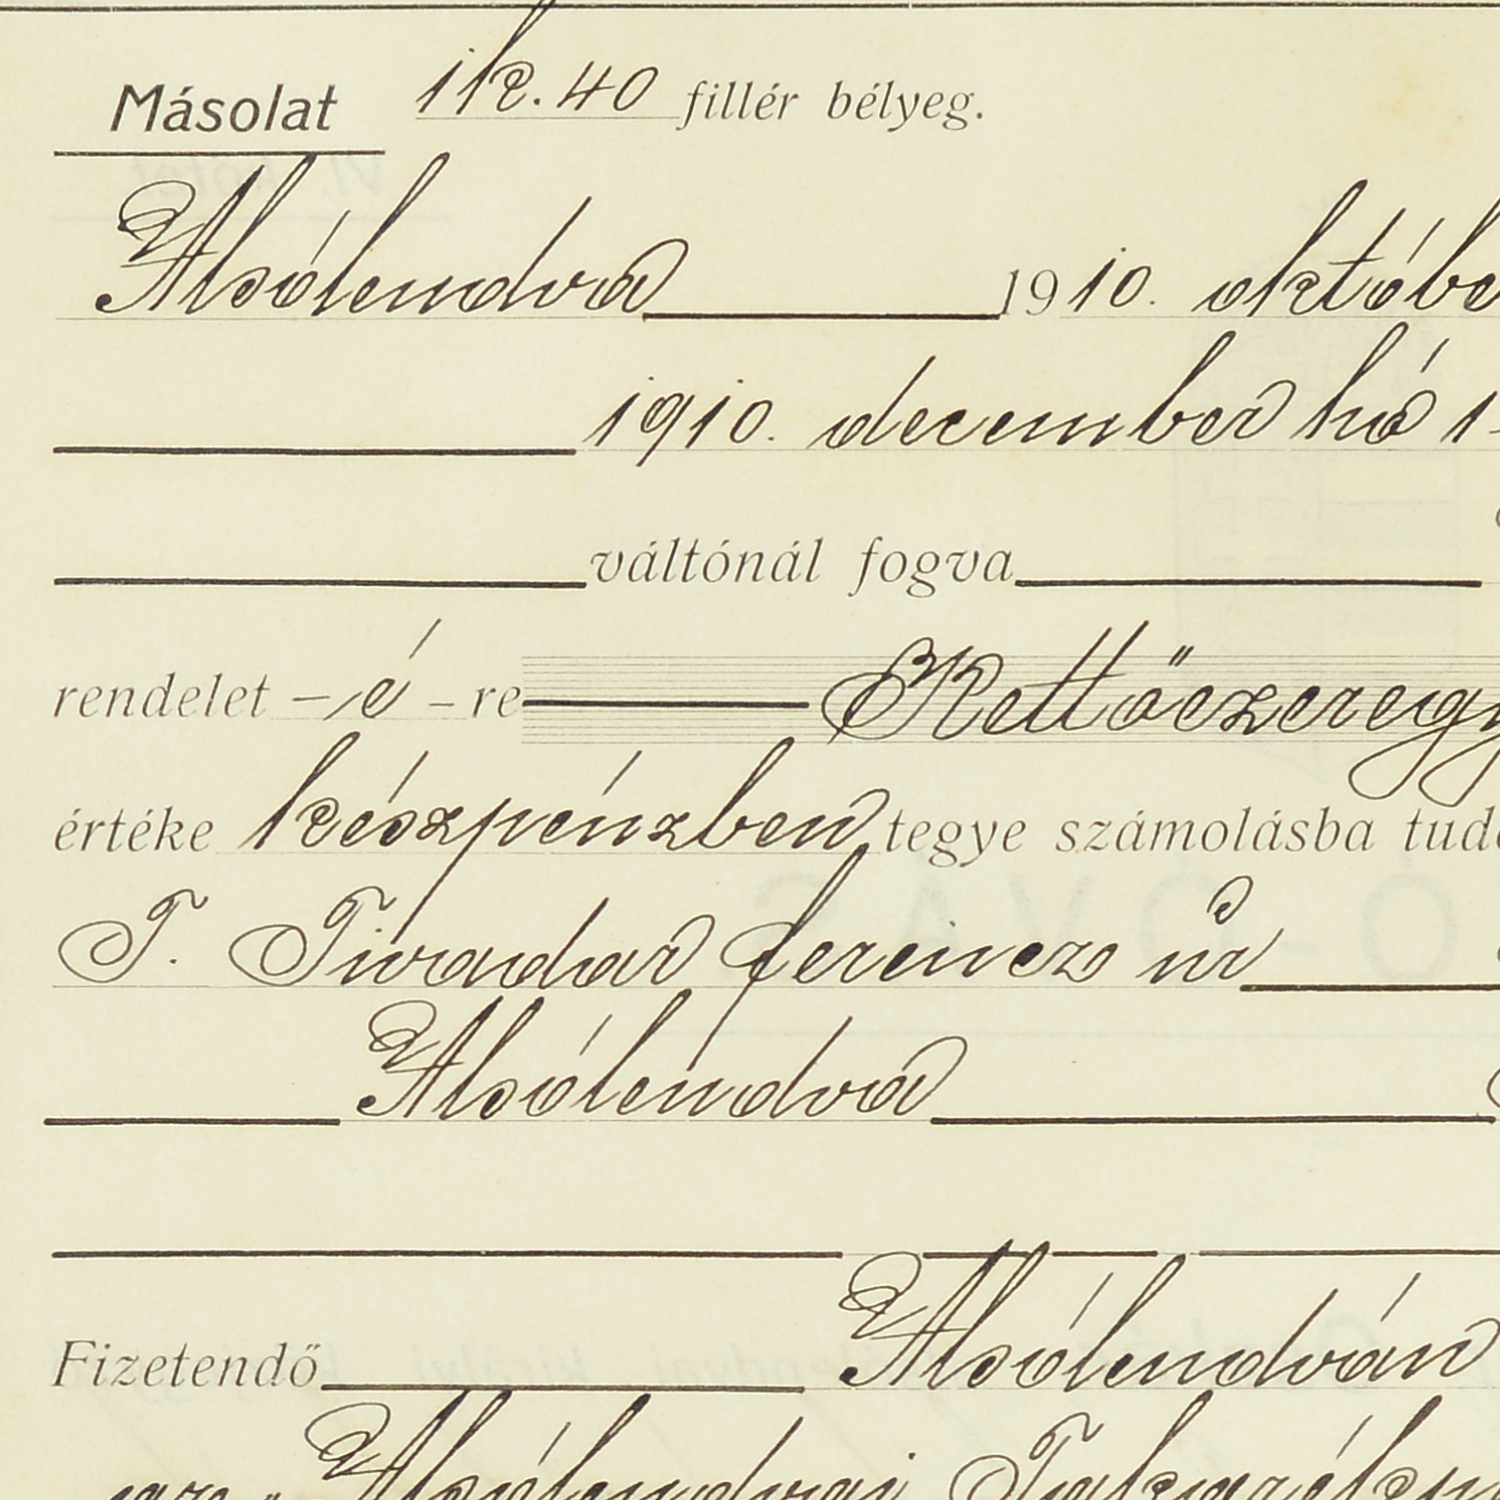 Másolat 1 k. 40 fillér bélyeg.
Alsólendva 1910. októbe
1910. december hó 1
váltónál fogva
rendelet – é – re Kettőezeregy
értéke készpénzben tegye számolásba tud
T. Tivadar Ferencz úr
Alsólendva
Fizetendő Alsólendván
Alsólendvai Takarékp